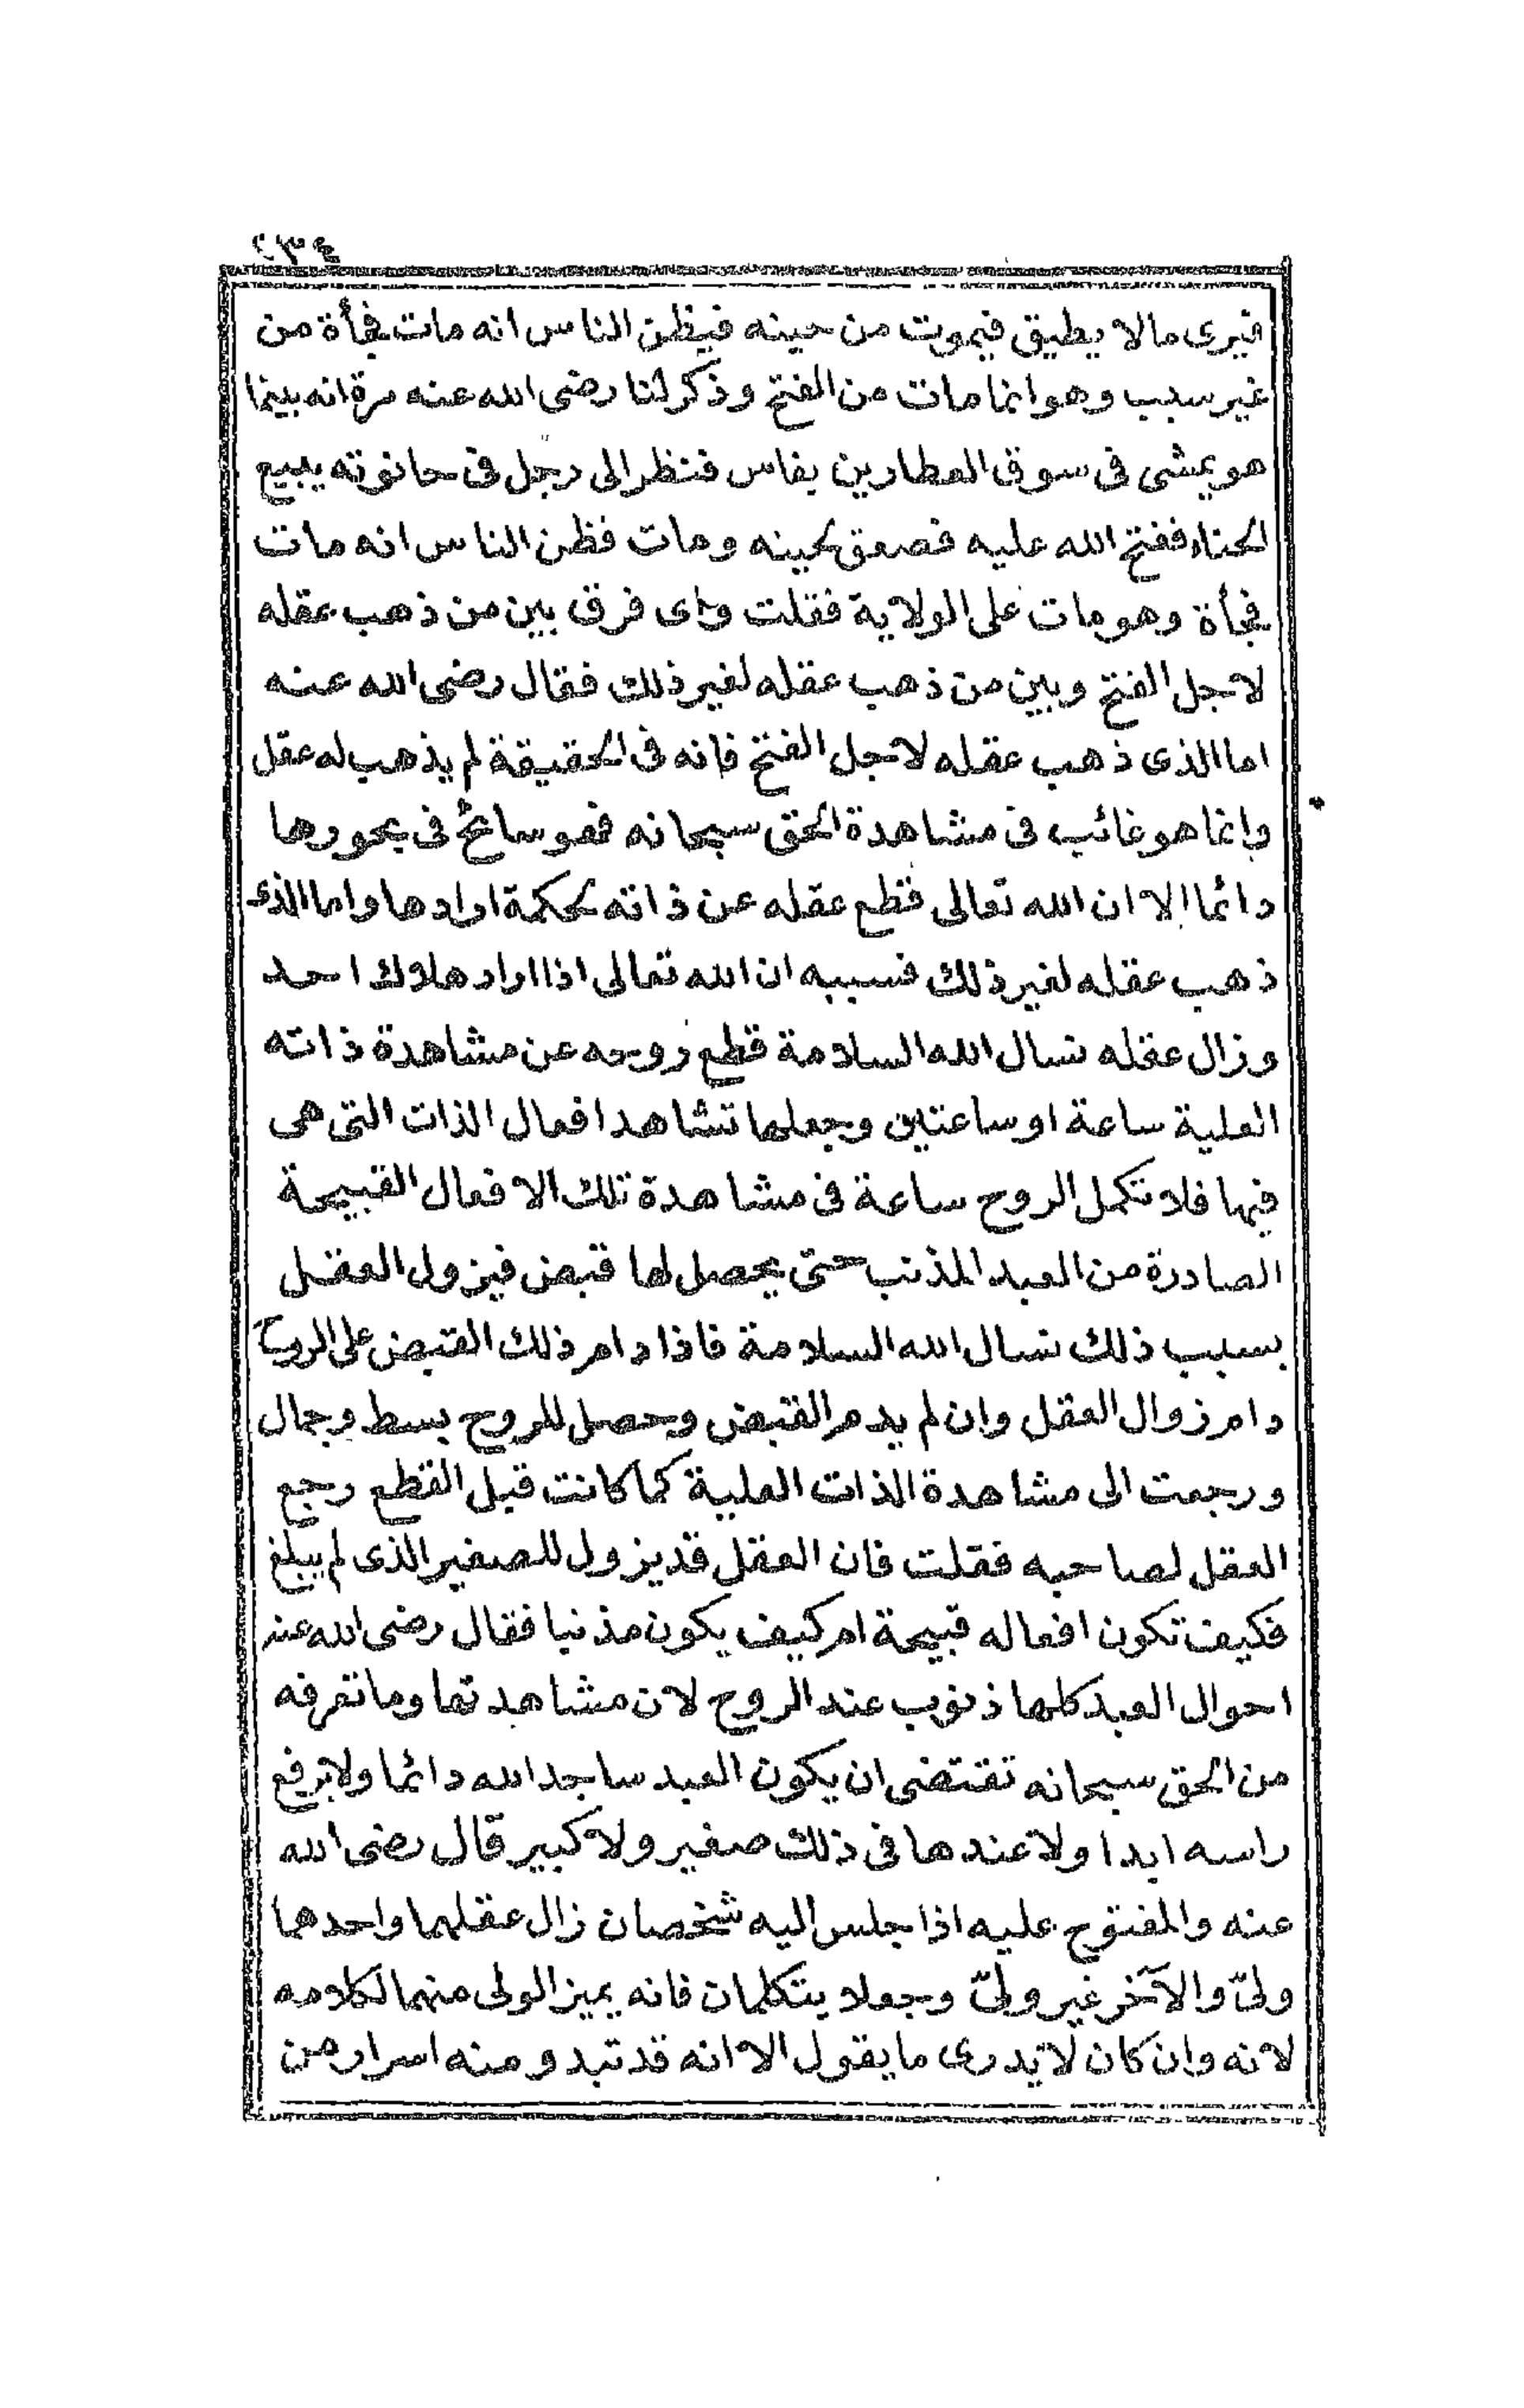 ٢٣٤
فيرى مالا يطيق فيموت من حينه فيظن الناس انه مات فجأة من
غير سبب وهو انما مات من الفتح وذكر لنا رضى الله عنه مرة انه بينما
هو يمشى فى سوق العطارين بفاس فنظر الى رجل فى حانوته يبيع
الحناء ففتح الله عليه فصعق لحينه ومات فظن الناس انه مات
فجأة وهو مات على الولاية فقلت واى فرق بين من ذهب عقله
لاجل الفتح وبين من ذهب عقله لغير ذلك فقال رضى الله عنه
اما الذى ذهب عقله لاجل الفتح فانه فى الحقيقة لم يذهب له عقل
وانما هو غائب فى مشاهدة الحق سبحانه فهو سائح فى بحورها
دائما الا ان الله تعالى قطع عقله عن ذاته لحكمة ارادها واما الذى
ذهب عقله لغير ذلك فسببه ان الله تعالى اذا اراد هلاك احد
وزال عقله نسال الله السلامة قطع روحه عن مشاهدة ذاته
العلية ساعة او ساعتين وجعلها تشاهد افعال الذات التى هى
فيها فلا تكمل الروح ساعة فى مشاهدة تلك الافعال القبيحة
الصادرة من العبد المذنب حتى يحصل لها قبض فيزول العقل
بسبب ذلك نسال الله السلامة فاذا دام ذلك القبض على الروح
دام زوال العقل وان لم يدم القبض وحصل للروح بسط وجمال
ورجعت الى مشاهدة الذات العلية كما كانت قبل القطع رجع
العقل لصاحبه فقلت فان العقل قد يزول للصغير الذى لم يبلغ
فكيف تكون افعاله قبيحة ام كيف يكون مذنبا فقال رضى الله عنه
احوال العبد كلها ذنوب عند الروح لان مشاهدتها وما تعرفه
من الحق سبحانه تقتضى ان يكون العبد ساجدا لله دائما ولا يرفع
راسه ابدا ولا عندها فى ذلك صغير ولا كبير قال رضى الله
عنه والمفتوح عليه اذا جلس اليه شخصان زال عقلهما واحدهما
ولىّ والآخر غير ولىّ وجعلا يتكلمان فانه يميز الولى منهما لكلامه
لانه وان كان لا يدرى ما يقول الا انه قد تبدو منه اسرار من